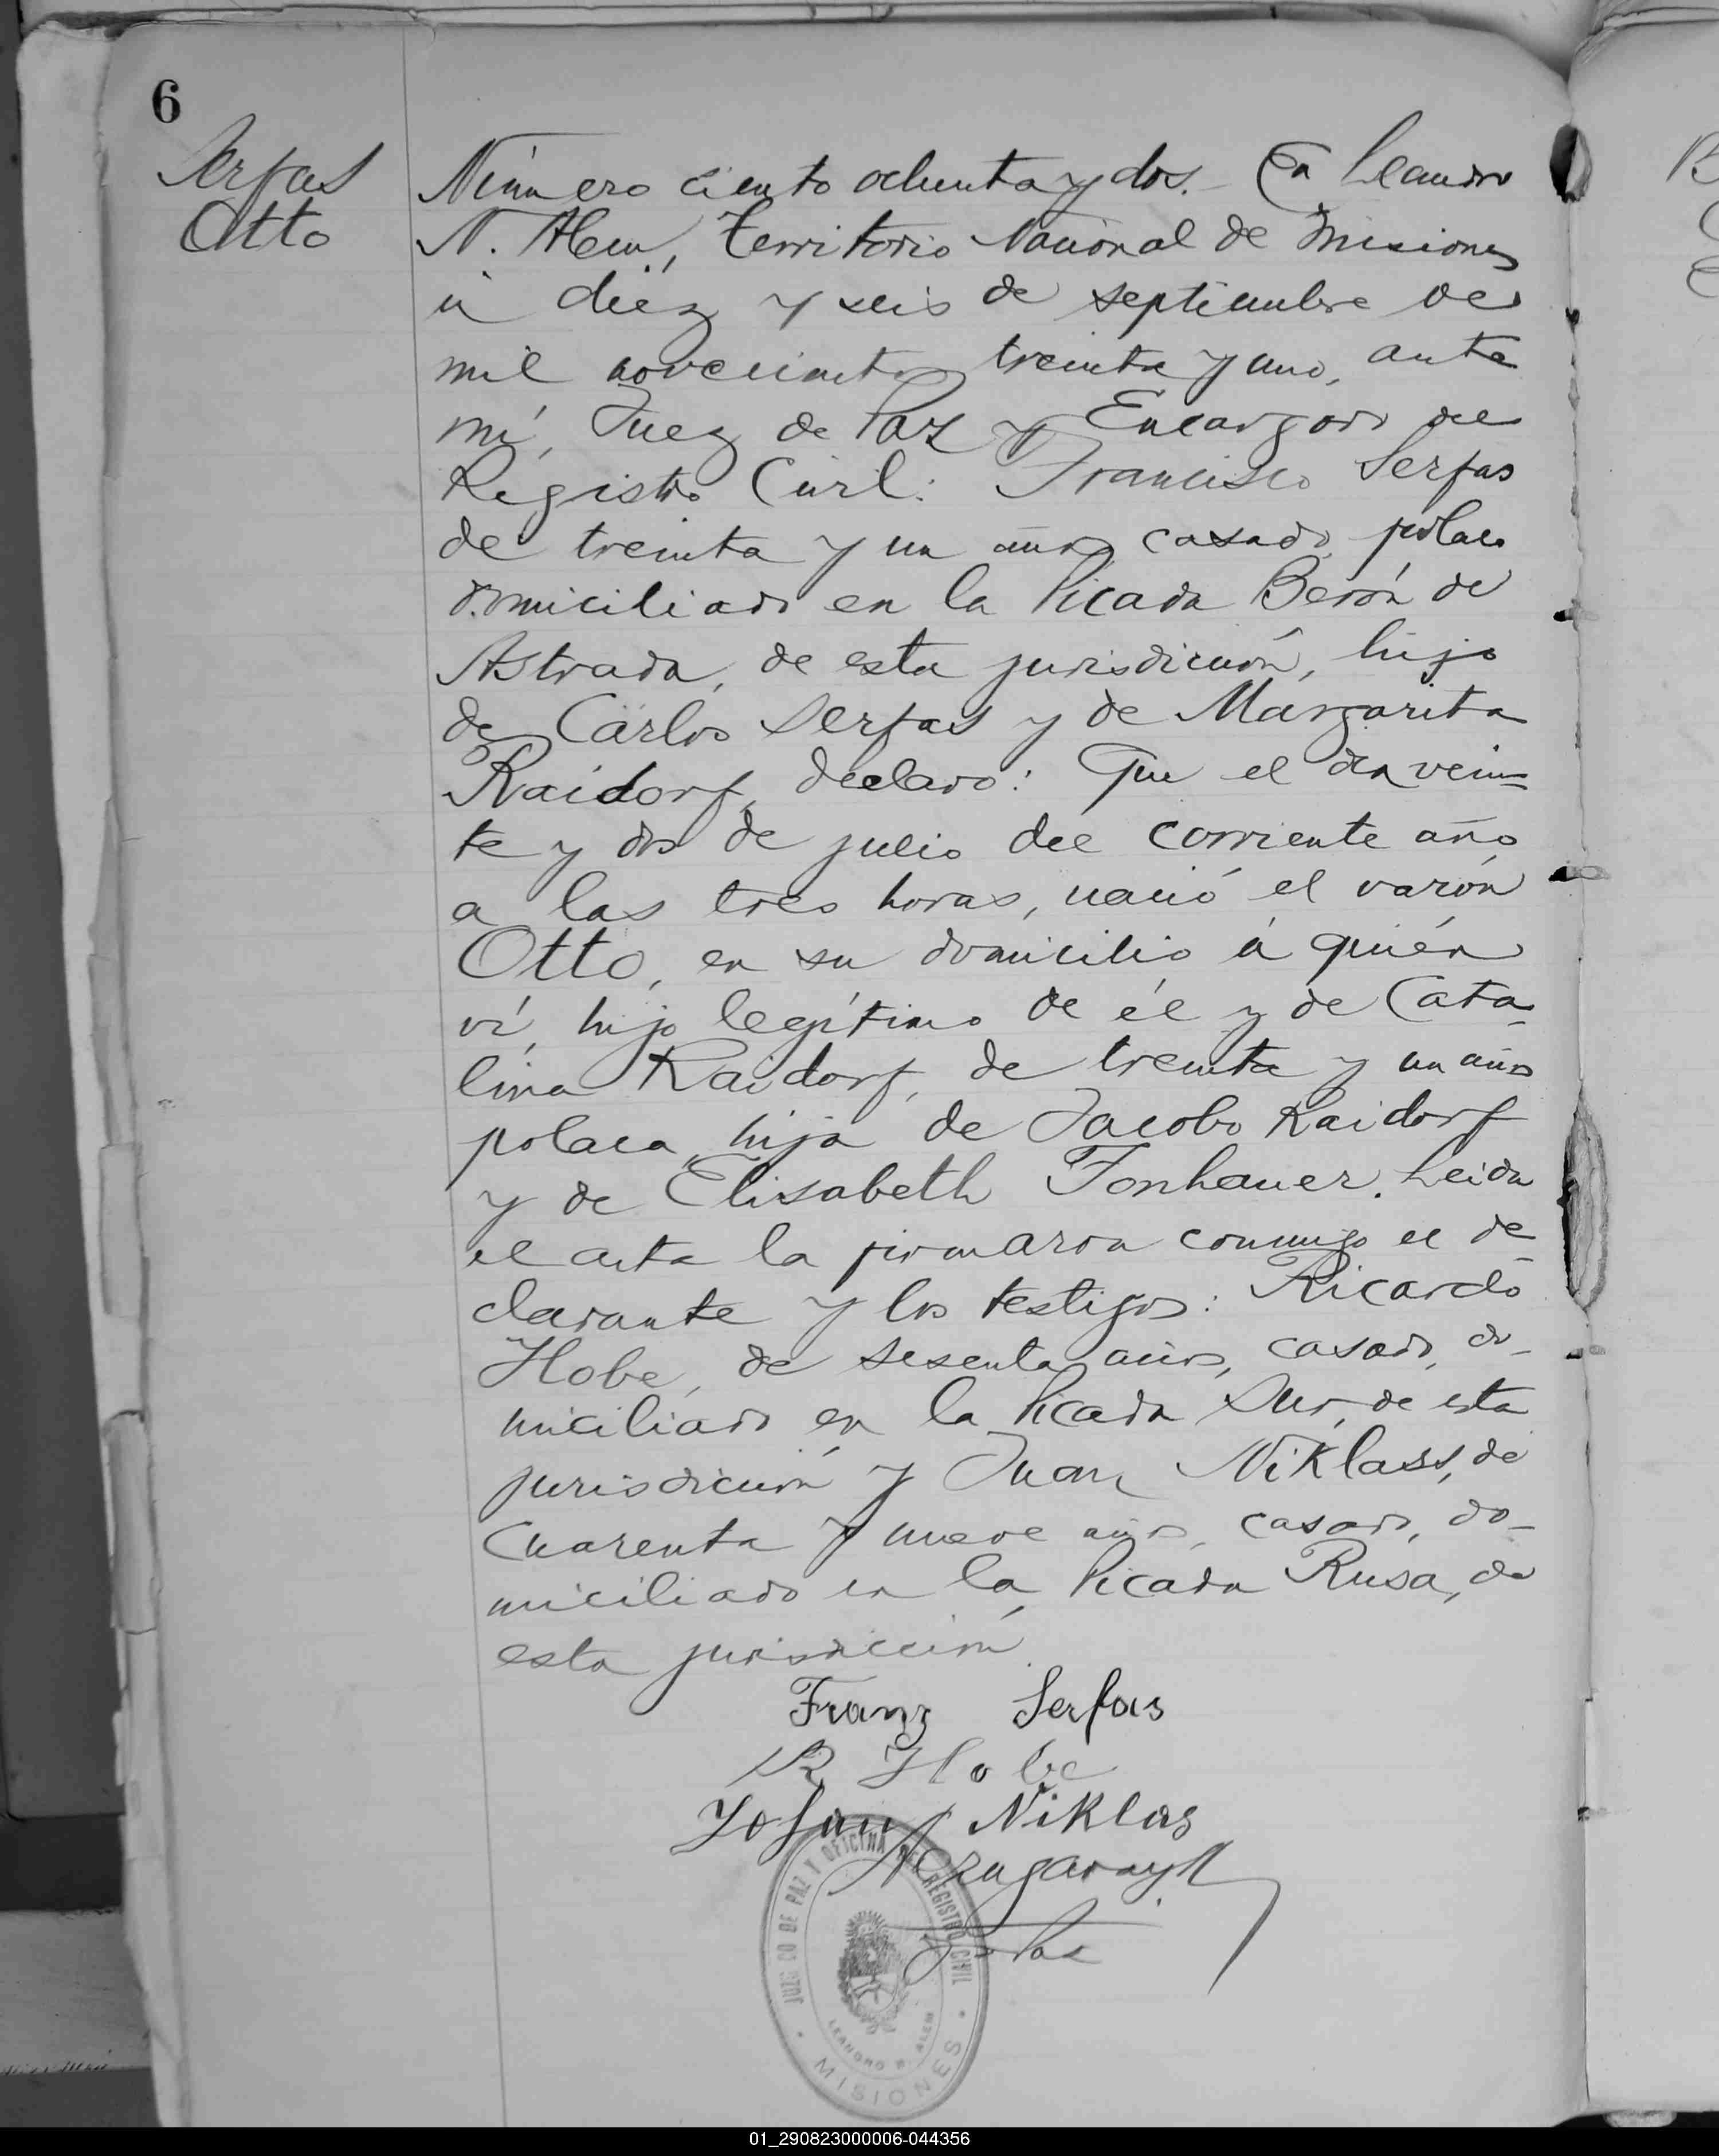 6
Serfas
Otto
Número ciento ochenta y dos. En Leandro
N. Alem, Territorio Nacional de Misiones
á diez y seis de septiembre de
mil novecientos treinta y uno, ante
mí, Juez de Paz y Encargado del
Registro Civil: Francisco Serfas
de treinta y un años casado, polaco
domiciliado en la Picada Berón de
Astrada, de esta jurisdicción, hijo
de Carlos Serfas y de Margarita
Raidorf, declaro: Que el dia vein=
te y dos de julio del corriente año
a las tres horas, nació el varón
Otto, en su domicilio á quién
ví, hijo legítimo de él y de Cata-
lina Raidorf, de treinta y un años
polaca, hija de Jacobo Raidorf
y de Elisabeth Fonhauer. Leida
el acta la firmaron conmigo el de-
clarante y los testigos: Ricardo
Hobe, de sesenta años, casado, do-
miciliado en la Picada Sur, de esta
jurisdicción y Juan Niklass, de
cuarenta y nueve años, casado, do-
miciliado en la Picada Rusa, de
esta jurisdicción.
Franz Serfas
R Hobe
Johann Niklas
JUZGADO DE PAZ Y OFICINA DEL REGISTRO CIVIL
LEANDRO N. ALEM
MISIONES
01_290823000006-044356